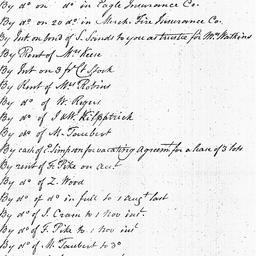 By do on do in Eagle Insurance Co.
By do on 20 do in Merch. Fire Insurance Co.
By Int on bond of S. Sands to you as trustee for Mrs Watkins
By Rent of Mrs Keese
By Int on 3 pr Ct Stock
By Rent of Mrs Robins
By do of W. Ryers
By do of J & W. Kilpatrick
By do of M. Taubert
By cash of E. Simpson for vacating Agreemt for a lease of 3 lots
By rent of F. Pike on acct
By do of Z. Wood
By do of do in full to 1 Augt last
By do of S. Cram to 1 Nov int.
By do of F. Pike to 1 Nov int
By do of M. Taubert to 3o